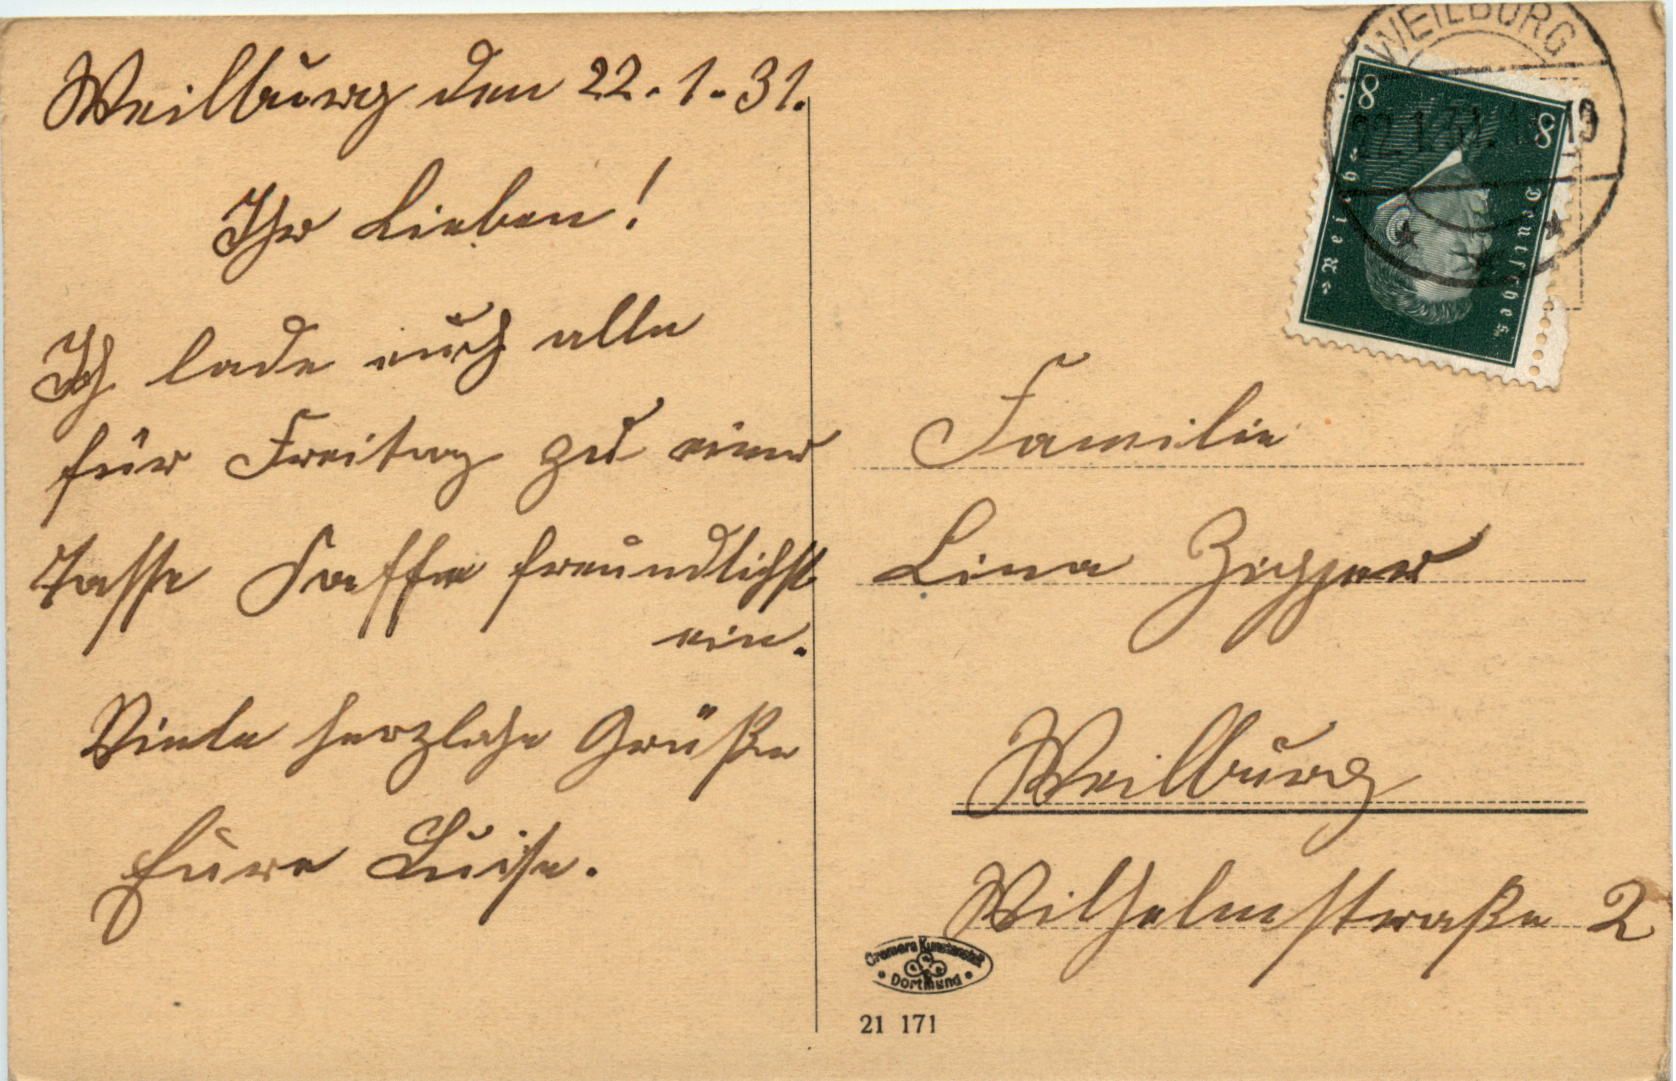 Weilburg den 22.1.31.
Ihr Lieben!
Ich lade euch alle
für Freitag zu einer
Tasse Kaffee freundlichst
ein.
Viele herzlche Grüße
Eure Luise.
WEILBURG
22.1.31. 19
8
8
Deutsches
Reich
Familie
Lina
Weilburg
Wilhelmstraße 2
Cramers Kunstanstalt
Dortmund
21 171